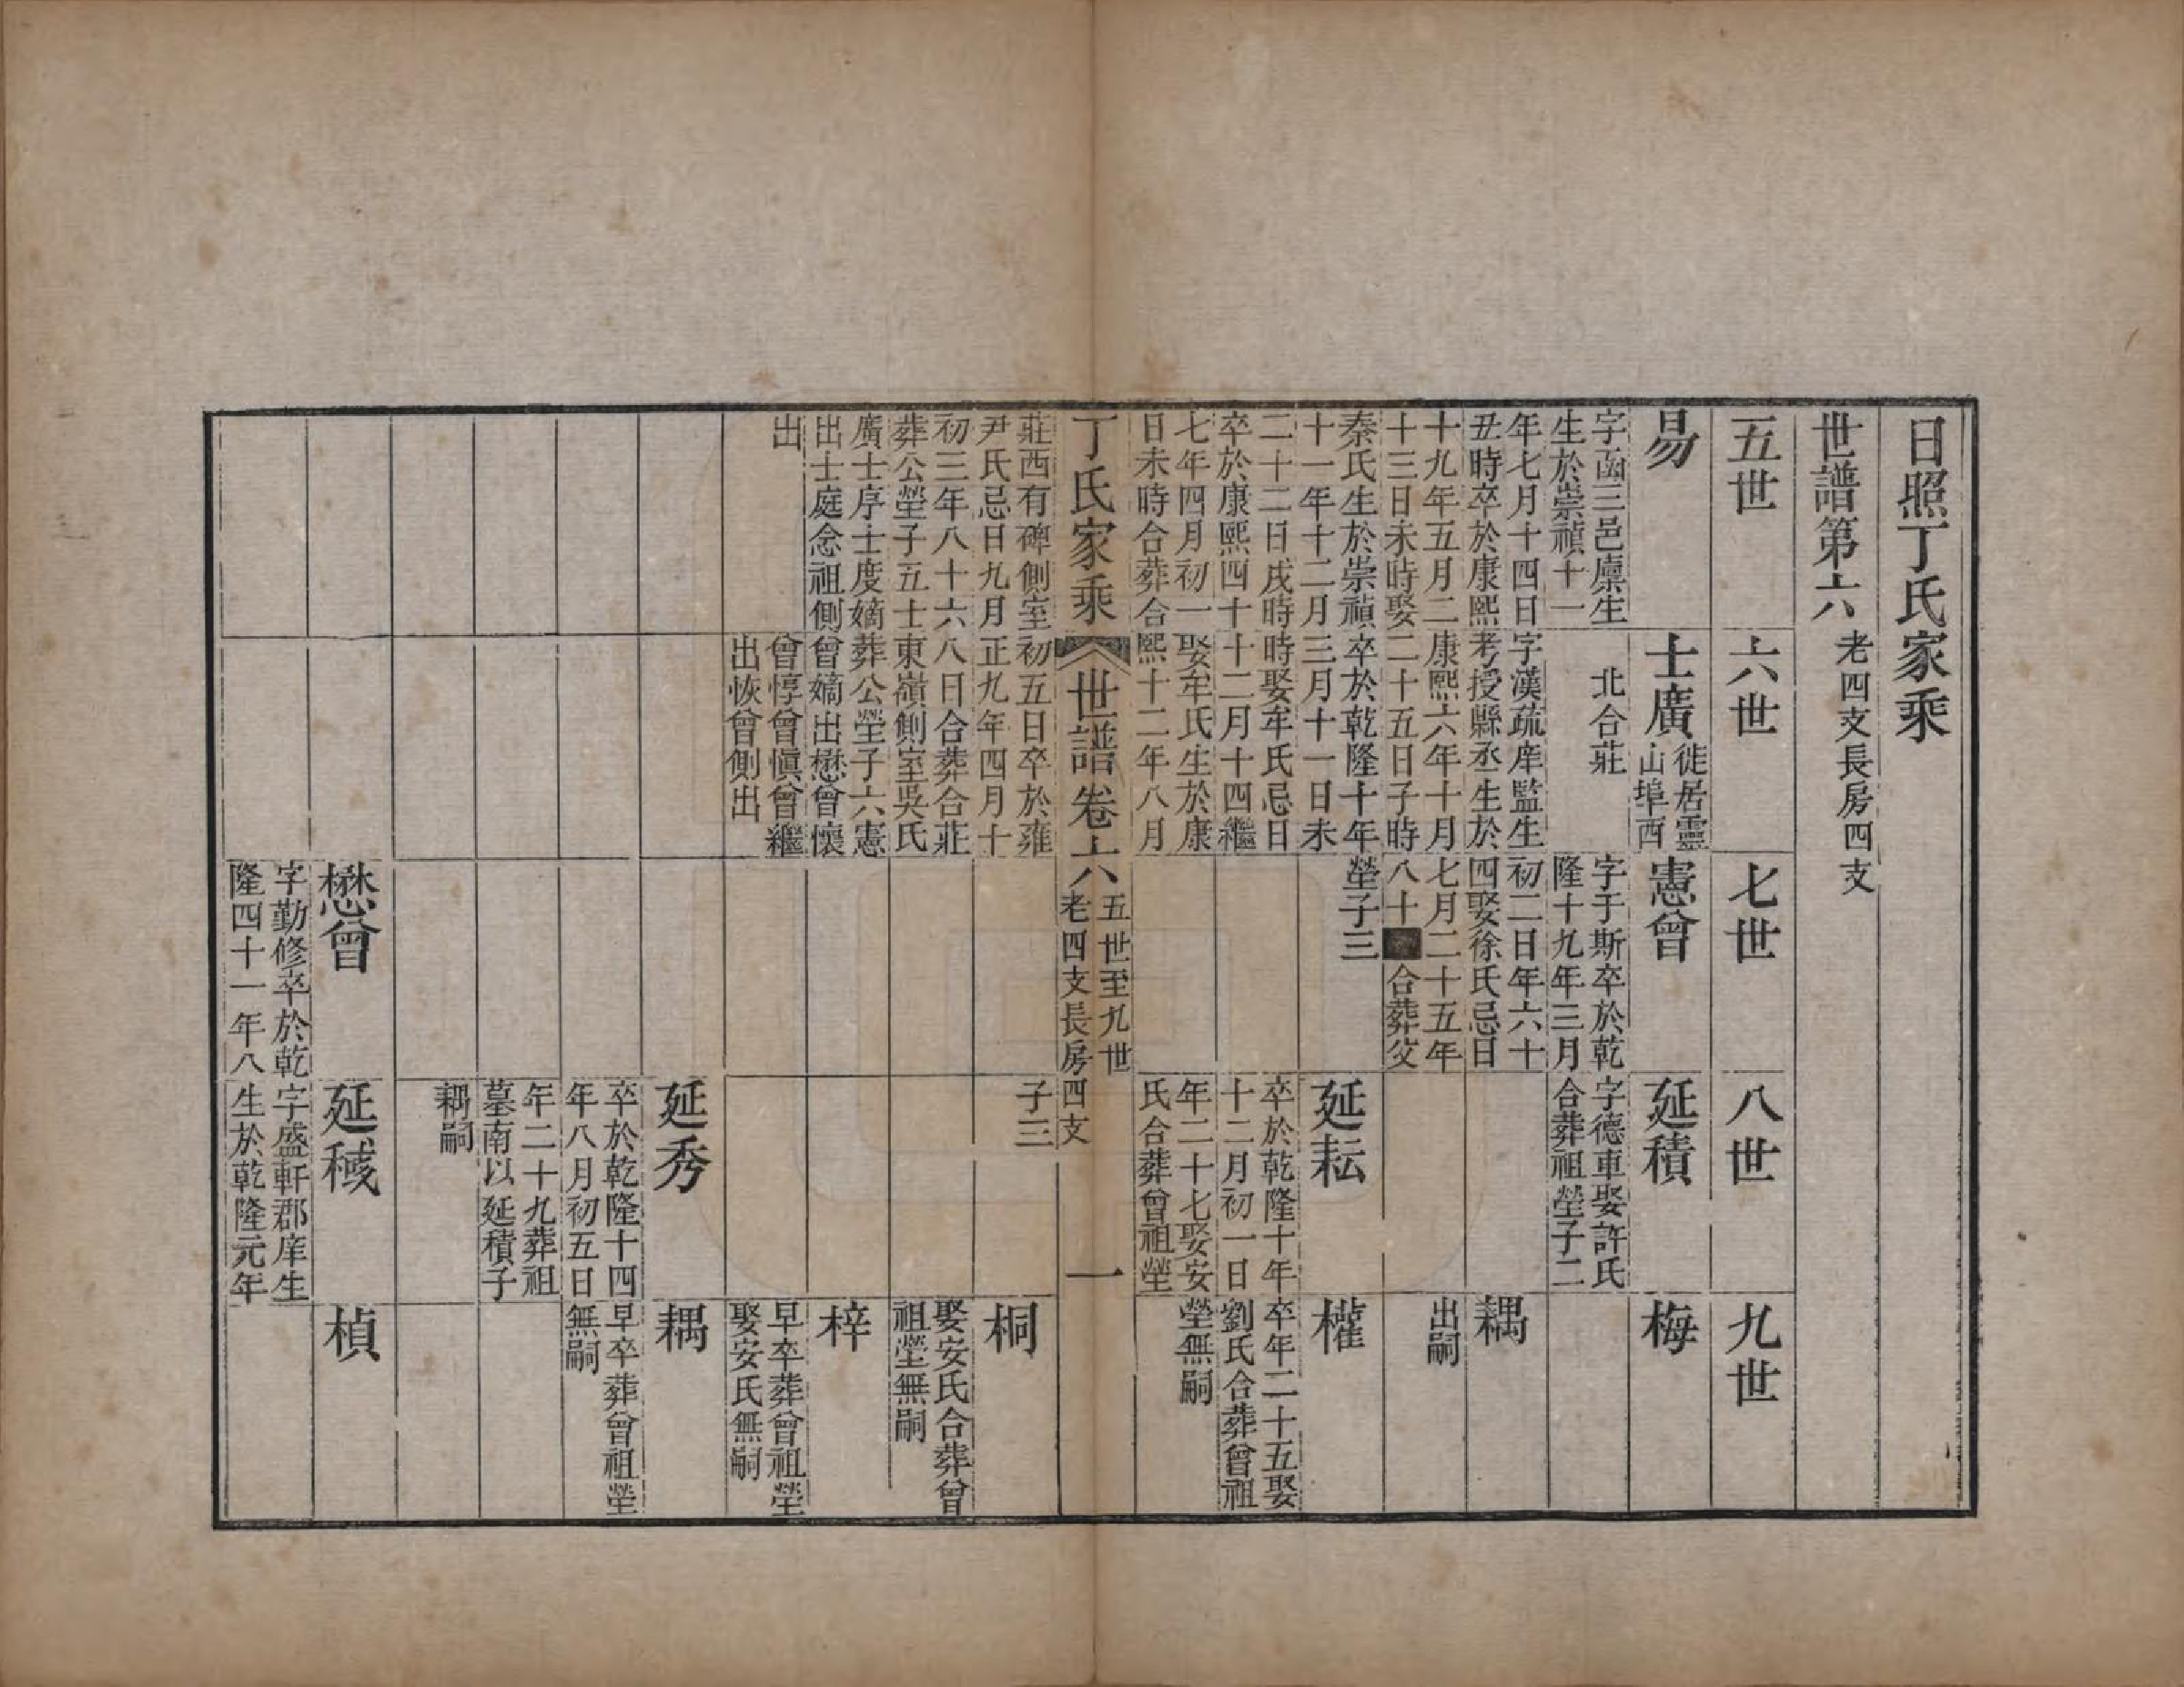 日照丁氏家乘
世譜第六 老四支長房四支
五世
六世
七世
八世
九世
易
字函三邑廩生
生於崇禎十一
年七月十四日
丑時卒於康熙
十九年五月二
十三日未時娶
秦氏生於崇禎
十一年十二月
二十二日戌時
卒於康熙四十
七年四月初一
日未時合葬合
莊西有碑側室
尹氏忌日九月
初三年八十六
葬公塋子五士
廣士序士度嫡
出士庭念祖側
出
士廣 徙居靈
山埠西
北合莊
字漢疏庠監生
考授縣丞生於
康熙六年十月
二十五日子時
卒於乾隆十年
三月十一日未
時娶牟氏忌日
十二月十四繼
娶牟氏生於康
熙十二年八月
初五日卒於雍
正九年四月十
八日合葬合莊
東嶺側室吳氏
葬公塋子六憲
曾嫡出懋曾懷
曾惇曾愼曾繼
出恢曾側出
憲曾
字于斯卒於乾
隆十九年三月
初二日年六十
四娶徐氏忌日
七月二十五年
八十 合葬父
塋子三
延積
字德車娶許氏
合葬祖塋子二
梅
耦
出嗣
延耘
卒於乾隆十年
十二月初一日
年二十七娶安
氏合葬曾祖塋
子三
權
卒年二十五娶
劉氏合葬曾祖
塋無嗣
丁氏家乘 世譜卷六 五世至九世
老四支長房四支 一
桐
娶安氏合葬曾
祖塋無嗣
梓
早卒葬曾祖塋
娶安氏無嗣
延秀
卒於乾隆十四
年八月初五日
年二十九葬祖
墓南以延積子
耦嗣
耦
早卒葬曾祖塋
無嗣
懋曾
字勤修卒於乾
隆四十一年八
延稢
字盛軒郡庠生
生於乾隆元年
楨